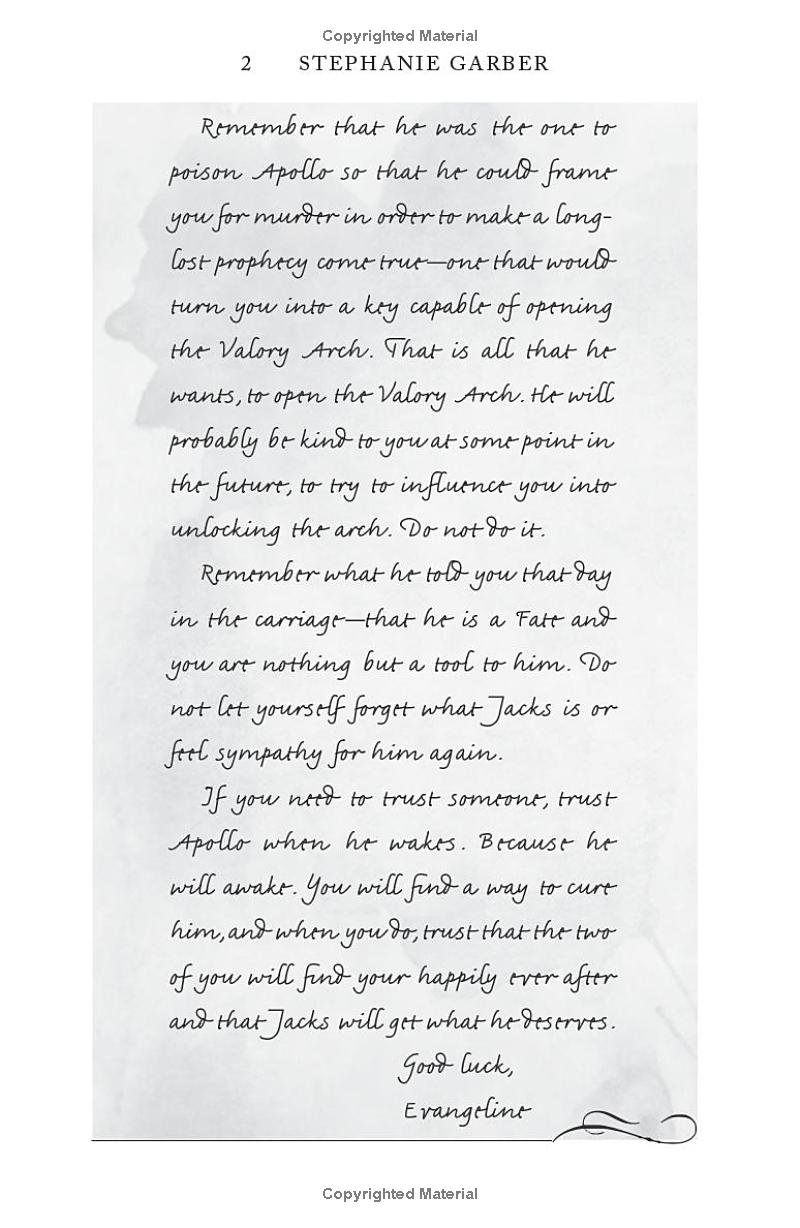 Copyrighted Material
2 STEPHANIE GARBER
Remember that he was the one to
poison Apollo so that he could frame
you for murder in order to make a long-
lost prophecy come true—one that would
turn you into a key capable of opening
the Valory Arch. That is all that he
wants, to open the Valory Arch. He will
probably be kind to you at some point in
the future, to try to influence you into
unlocking the arch. Do not do it.
Remember what he told you that day
in the carriage—that he is a Fate and
you are nothing but a tool to him. Do
not let yourself forget what Jacks is or
feel sympathy for him again.
If you need to trust someone, trust
Apollo when he wakes. Because he
will awake. You will find a way to cure
him, and when you do, trust that the two
of you will find your happily ever after
and that Jacks will get what he deserves.
Good luck,
Evangeline
Copyrighted Material